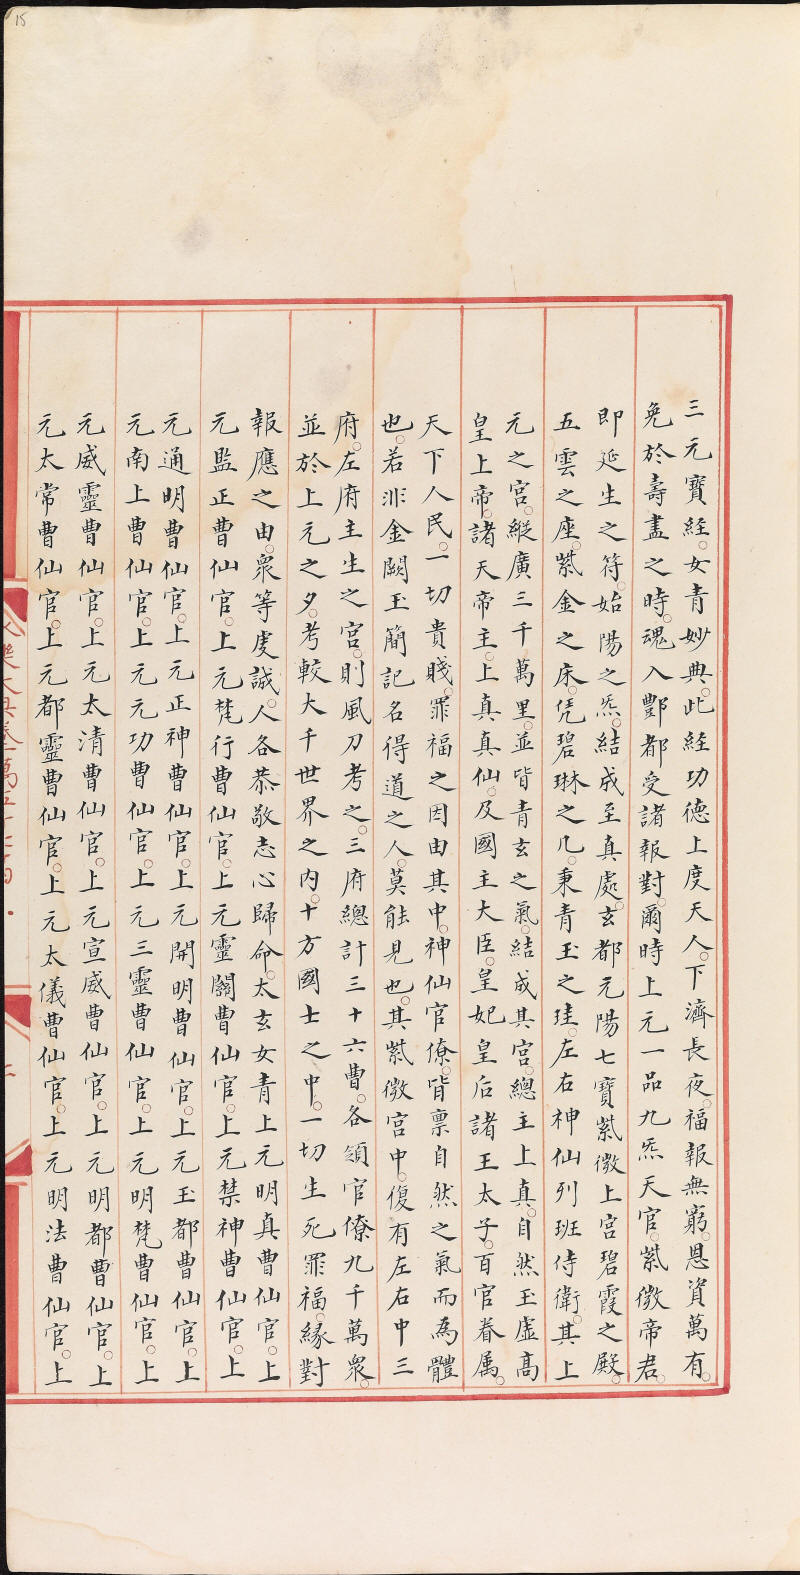 三元寶経。女青妙典。此經功德上度天人。下濟長夜。福報無窮。恩資萬有。
免於壽盡之時。魂入酆都受諸報對。爾時上元一品九炁天官。紫微帝君。
即延生之符。始陽之炁。結成至真處。玄都元陽七寶紫微上宮碧霞之殿。
五雲之座。紫金之床。凭碧琳之几。秉青玉之珪。左右神仙列班侍衛。其上
元之宮。縱廣三千萬里。並皆青玄之氣。結成其宮。總主上真。自然玉虛高
皇上帝。諸天帝主。上真真仙。及國主大臣。皇妃皇后諸王太子。百官眷属。
天下人民。一切貴賤。罪福之因由其中。神仙官僚。皆禀自然之氣而為體
也。若非金闕玉簡記名得道之人。莫能見也。其紫微宮中。復有左右中三
府。左府主生之宮。則風刀考之。三府總計三十六曹。各領官僚九千萬衆。
並於上元之夕。考較大千世界之內。十方國土之中。一切生死罪福。緣對
報應之由。衆等虔誠。人各恭敬志心歸命。太玄女青上元明真曹仙官。上
元監正曹仙官。上元梵行曹仙官。上元靈關曹仙官。上元禁神曹仙官。上
元通明曹仙官。上元正神曹仙官。上元開明曹仙官。上元玉都曹仙官。上
元南上曹仙官。上元元功曹仙官。上元三靈曹仙官。上元明梵曹仙官。上
元威靈曹仙官。上元太清曹仙官。上元宣威曹仙官。上元明都曹仙官。上
元太常曹仙官。上元都靈曹仙官。上元太儀曹仙官。上元明法曹仙官。上
15